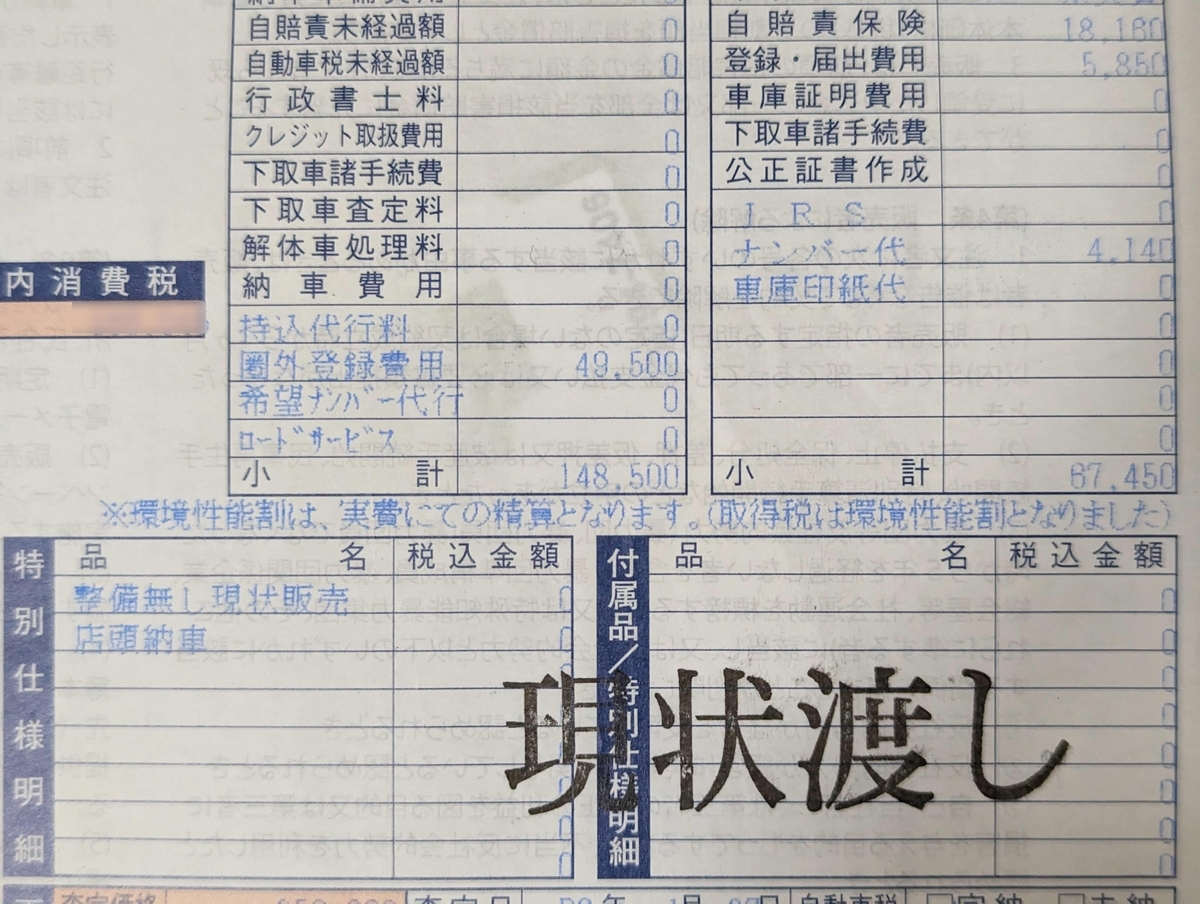 自賠責未経過額 0
自動車税未経過額 0
行政書士料 0
クレジット取扱費用 0
下取車諸手続費 0
下取車査定料 0
解体車処理料 0
納車費用 0
持込代行料 0
圏外登録費用 49,500
希望ナンバー代行 0
ロードサービス 0
小計 148,500
自賠責保険 18,160
登録・届出費用 5,850
車庫証明費用 0
下取車諸手続費 0
公正証書作成 0
IRS 0
ナンバー代 4,140
車庫印紙代 0
0
0
0
0
小計 67,450
内消費税
※環境性能割は、実費にての精算となります。(取得税は環境性能割となりました)
特別仕様明細
品名 税込金額
整備無し現状販売 0
店頭納車 0
0
0
0
0
0
0
付属品/特別仕様明細
品名 税込金額
0
0
0
0
0
0
0
0
現状渡し